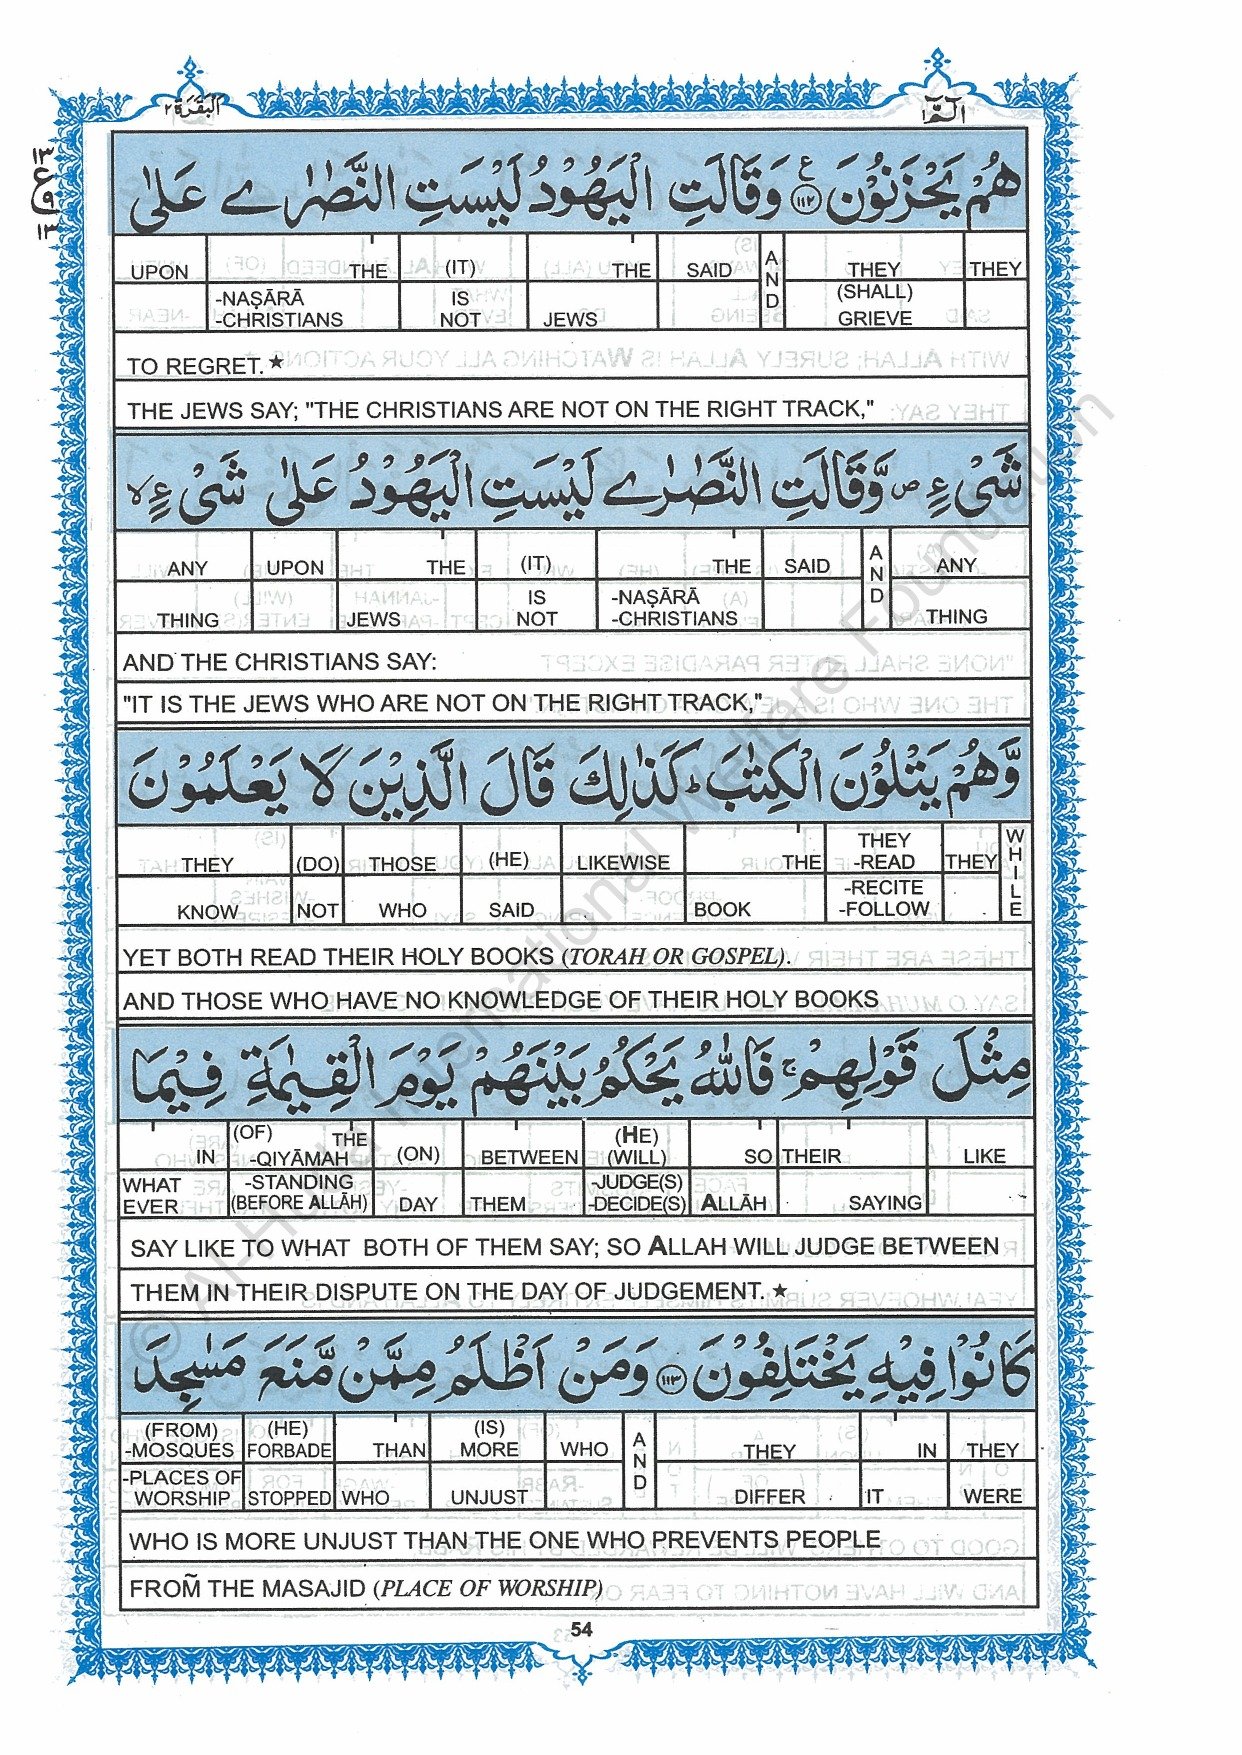 الٓمّٓ ١
البقرة ٢
١٣
ع
٩
١٣
هُمْ يَحْزَنُوْنَ ﴿١١٢﴾ ع وَقَالَتِ الْيَهُوْدُ لَيْسَتِ النَّصٰرٰے عَلٰى
UPON THE (IT) THE SAID AND THEY THEY
-NAṢĀRĀ -CHRISTIANS IS NOT JEWS (SHALL) GRIEVE
TO REGRET.★
THE JEWS SAY; "THE CHRISTIANS ARE NOT ON THE RIGHT TRACK,"
شَيْءٍ ص وَّقَالَتِ النَّصٰرٰے لَيْسَتِ الْيَهُوْدُ عَلٰى شَيْءٍ لا
ANY UPON THE (IT) THE SAID AND ANY
THING JEWS IS NOT -NAṢĀRĀ -CHRISTIANS THING
AND THE CHRISTIANS SAY:
"IT IS THE JEWS WHO ARE NOT ON THE RIGHT TRACK,"
وَّهُمْ يَتْلُوْنَ الْكِتٰبَ ط كَذٰلِكَ قَالَ الَّذِيْنَ لَا يَعْلَمُوْنَ
THEY (DO) THOSE (HE) LIKEWISE THE THEY -READ THEY WHILE
KNOW NOT WHO SAID BOOK -RECITE -FOLLOW
YET BOTH READ THEIR HOLY BOOKS (TORAH OR GOSPEL).
AND THOSE WHO HAVE NO KNOWLEDGE OF THEIR HOLY BOOKS
مِثْلَ قَوْلِهِمْ ج فَاللّٰهُ يَحْكُمُ بَيْنَهُمْ يَوْمَ الْقِيٰمَةِ فِيْمَا
IN (OF) THE -QIYĀMAH (ON) BETWEEN (HE) (WILL) SO THEIR LIKE
WHAT EVER -STANDING (BEFORE ALLĀH) DAY THEM -JUDGE(S) -DECIDE(S) ALLĀH SAYING
SAY LIKE TO WHAT BOTH OF THEM SAY; SO ALLAH WILL JUDGE BETWEEN
THEM IN THEIR DISPUTE ON THE DAY OF JUDGEMENT. ★
كَانُوْا فِيْهِ يَخْتَلِفُوْنَ ﴿١١٣﴾ وَمَنْ اَظْلَمُ مِمَّنْ مَّنَعَ مَسٰجِدَ
(FROM) -MOSQUES (HE) FORBADE THAN (IS) MORE WHO AND THEY IN THEY
-PLACES OF WORSHIP STOPPED WHO UNJUST DIFFER IT WERE
WHO IS MORE UNJUST THAN THE ONE WHO PREVENTS PEOPLE
FROM̃ THE MASAJID (PLACE OF WORSHIP)
54
© Al-Huda International Welfare Foundation